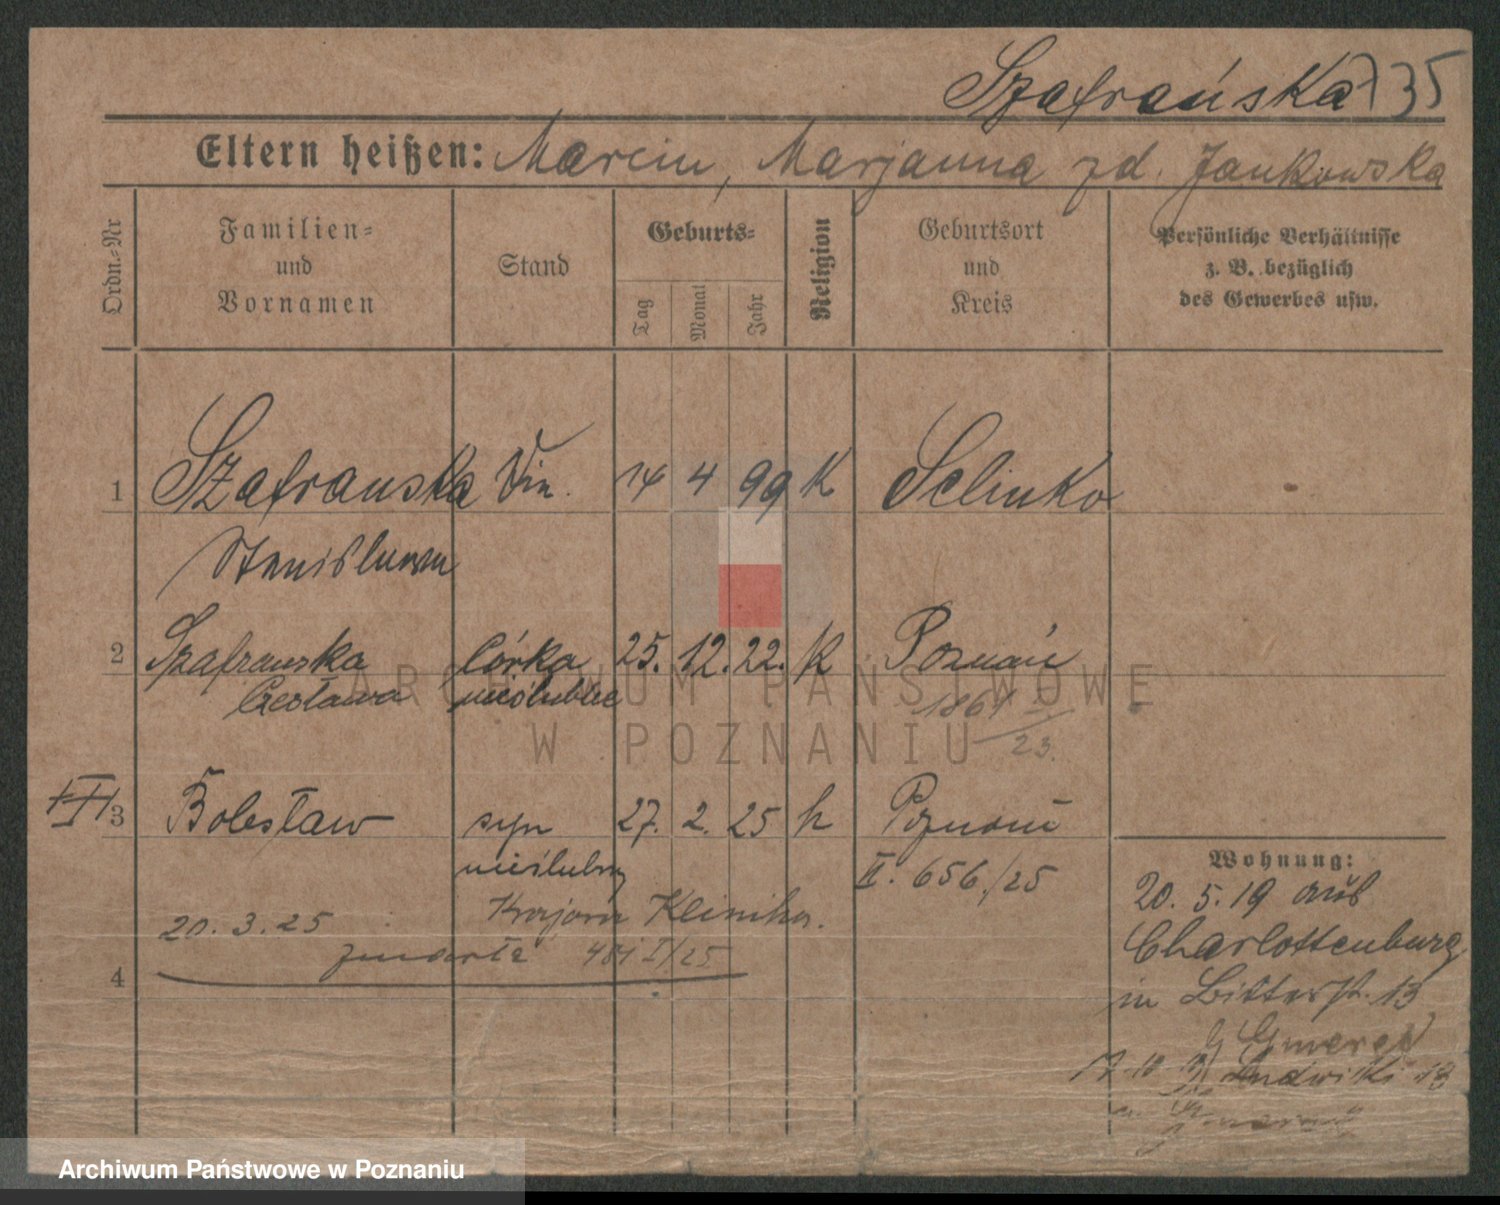 Szafrańska 735
Eltern heißen: Marcin, Marjanna zd. Jankowska
Ordn.-Nr
Familien- und Vornamen
Stand
Geburts-
Tag
Monat
Jahr
Religion
Geburtsort und Kreis
Persönliche Verhältnisse z. B. bezüglich des Gewerbes usw.
1 Szafranska 14 4 99 K Solinko
Stanislawa
2 Szafranska córka 25. 12. 22. K Poznań
Czesława nieślubne
1864
23.
3 Bolesław syn 27. 2. 25 k Poznań
nieślubny II. 656./25
Wohnung:
20. 5. 19 aus
Charlottenburg
20. 3. 25 Krajowa Klinika.
zmarła 481 I/25
4
in Bitterst. 13
17. 10.
ARCHIWUM PAŃSTWOWE
W POZNANIU
Archiwum Państwowe w Poznaniu